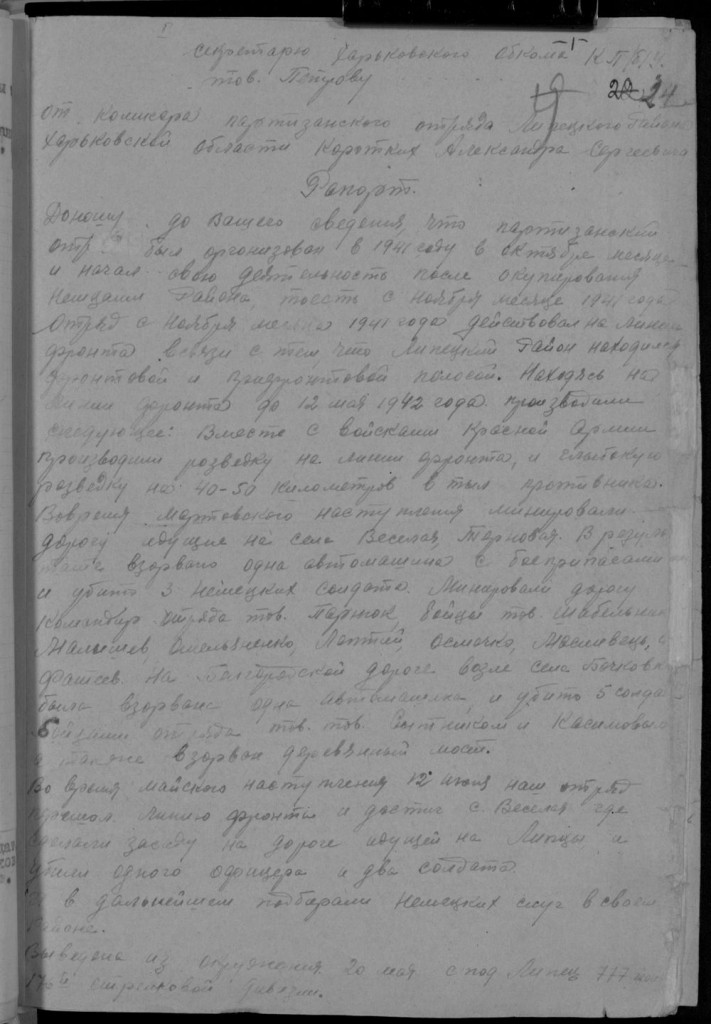 I
Секретарю Харьковского Обкома КП/б/У.
тов. Петрову
20 24
от Комисара партизанского отряда Липецкого Района
Харьковской области Коротких Александра Сергеевича
Рапорт.
Доношу до Вашего сведения, что партизанский
отр. был организован в 1941 году в октябре месяце
и начал свою деятельность после окупирования
Немцами Района, тоесть с Ноября месяце 1941 года
Отряд с Ноября месяца 1941 года действовал на линии
фронта всвязи с тем что Липецкий Район находился
фронтовой и прифронтовой полосой. Находясь на
линии фронта до 12 мая 1942 года производили
следующее: Вместе с войсками Красной Армии
производили розведку на линии фронта, и глыбокую
розведку на 40-50 километров в тыл противника.
Вовремя Мартовского наступления минировали
дорогу идущие на села Веселая, Терновая. В резуль
тате взорвано одна автомашина с боеприпасами
и убито 3 немецких солдата. Минировали дорогу
Командир отряда тов. Паржок, бойцы тов.
Малышев, Омельяненко, Лаптий, Осмачко, Масливець, и
Фатеев. На Белгородской дороге возле села Бочковк
была взорвана одна автомашина и убито 5 солда
бойцами отряда тов. тов. Сытником и Касимовым
а также взорван деревянный мост.
Во время майского наступления 12 июня наш отряд
перешол линию фронта и достиг с. Веселая где
сделали засаду на дороге идущей на Липцы и
убили одного офицера и два солдата.
в дальнейшем подбирали немецких слуг в своем
Районе.
Выведена из окружения 20 мая с под Липец 777
стрелковой дивизии.